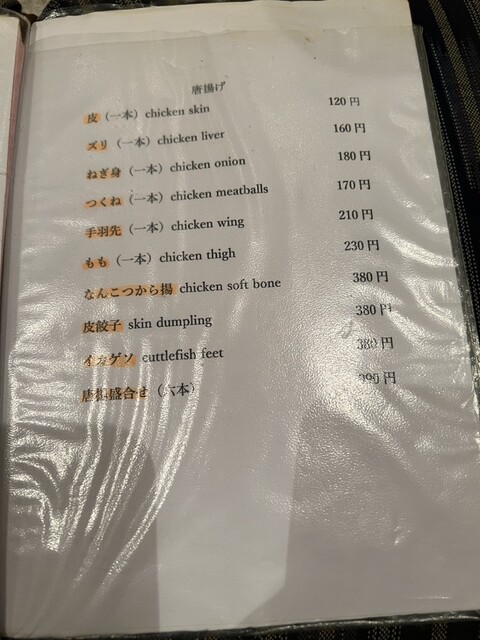 唐揚げ
皮（一本）chicken skin 120 円
ズリ（一本）chicken liver 160 円
ねぎ身（一本）chicken onion 180 円
つくね（一本）chicken meatballs 170 円
手羽先（一本）chicken wing 210 円
もも（一本）chicken thigh 230 円
なんこつから揚 chicken soft bone 380 円
皮餃子 skin dumpling 380 円
イカゲソ cuttlefish feet 380 円
唐揚盛合せ（六本） 円